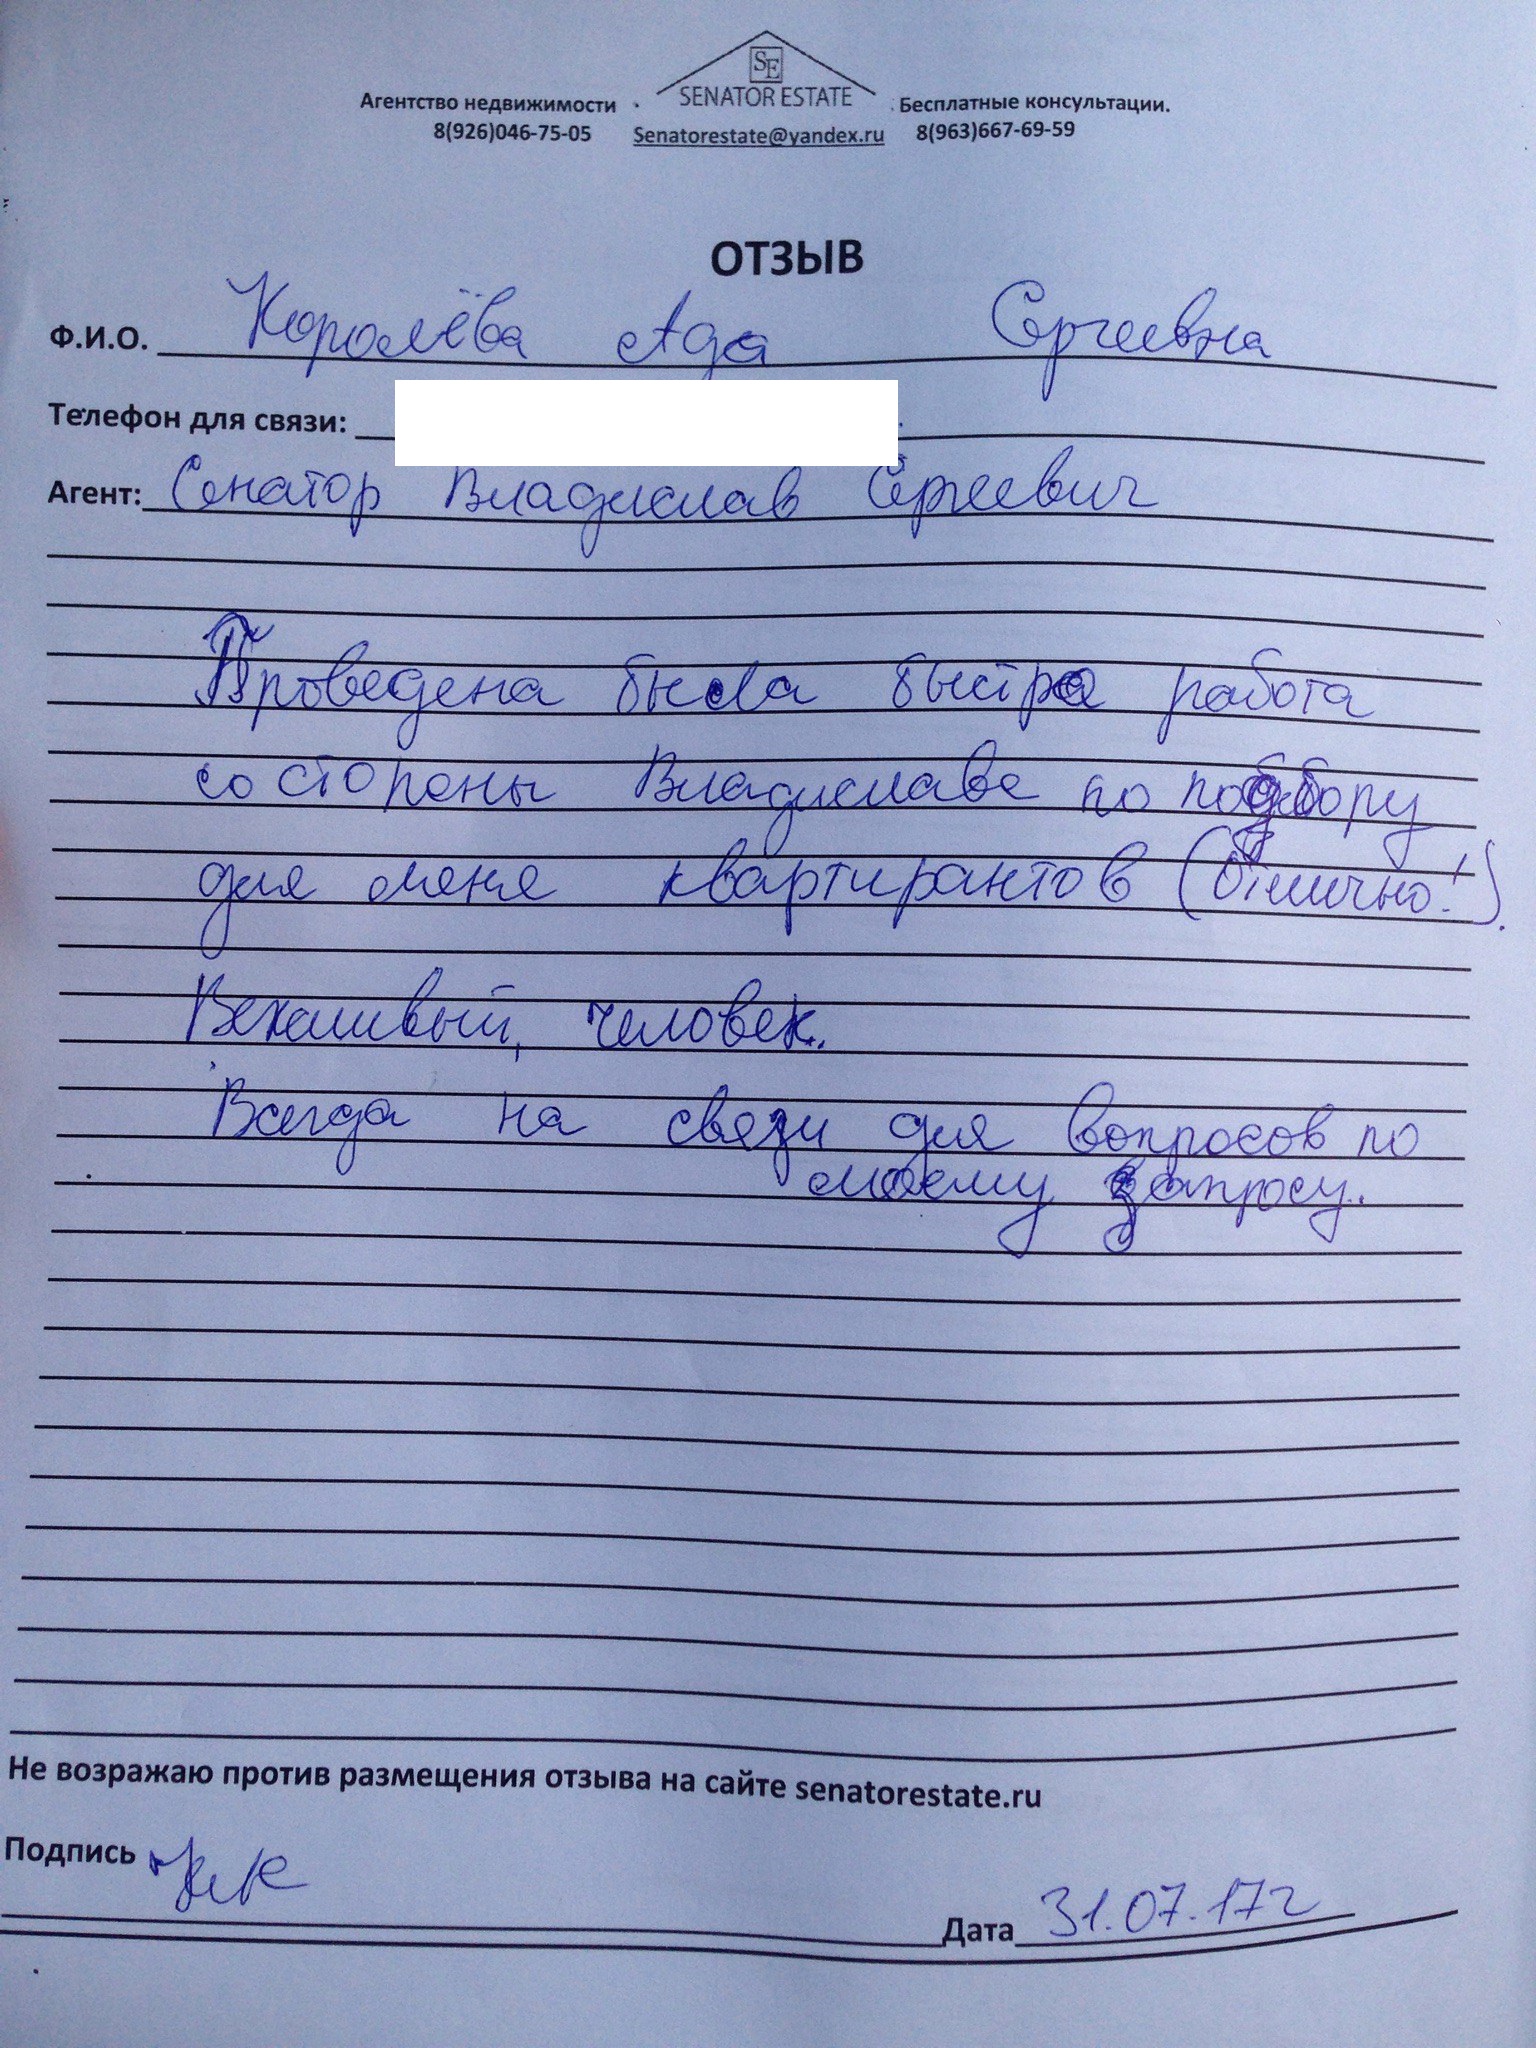 SE
SENATOR ESTATE
Агентство недвижимости Бесплатные консультации.
8(926)046-75-05 Senatorestate@yandex.ru 8(963)667-69-59
ОТЗЫВ
Ф.И.О. Королёва Ада Сергеевна
Телефон для связи:
Агент: Сенатор Владислав Сергеевич
Проведена была быстро работа
со стороны Владислава по подбору
для меня квартирантов (Отлично!).
Вежливый, человек.
Всегда на связи для вопросов по
моему запросу.
Не возражаю против размещения отзыва на сайте senatorestate.ru
Подпись
Дата 31.07.17г